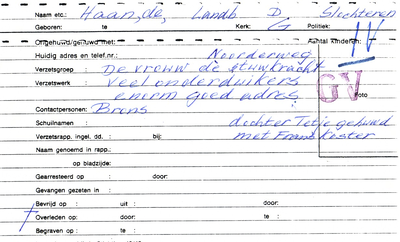 Naam etc.: Haan, de, Landb D. Slochteren
Geboren: te Kerk: G Politiek:
Ongehuwd/gehuwd met: Aantal kinderen: IV
Huidig adres en telef.nr.: Noorderweg
Verzetsgroep : De vrouw de stuwkracht
Verzetswerk veel onderduikers GV Foto
enorm goed adres
Contactpersonen: Brons
Schuilnamen : dochter Tetje gehuwd
Verzetsrapp. ingel. dd. : bij: met Frans Koster
Naam genoemd in rapp.:
op bladzijde:
Gearresteerd op : door:
Gevangen gezeten in :
Bevrijd op : uit : door:
Overleden op: door: te :
Begraven op : te :